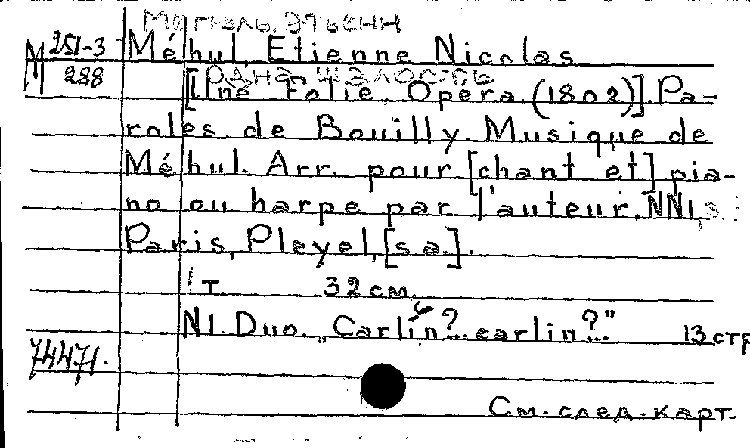 Мегюль, Этьенн
М 251-3
228
Méhul, Etienne Nicolas
Одна шалость
[Une Folie. Opéra. (1802)]. Pa-
roles de Bouilly. Musique de
Méhul. Arr. pour [chant et] pia-
no ou harpe par l'auteur. NN1,
Paris, Pleyel, [s.a.].
1 т. 32 см.
N1. Duo. „Carlin?.. carlin?.."  13 стр
74471.
См. след. карт.